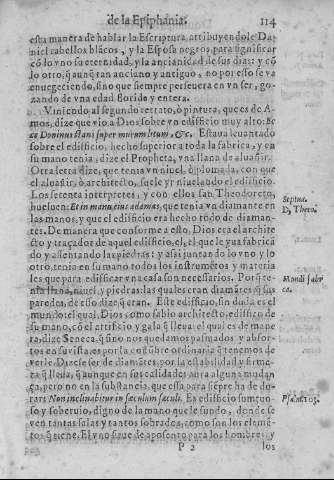 de la Epiphania. 114
esta manera de hablar la Escriptura attribuyendole Da-
niel cabellos blãcos, y la Esposa negros, para significar
cõ lo vno su eternidad, y la ancianidad de sus dias: y cõ
lo otro, q̃ aunq̃ tan anciano y antiguo, no por esso se va
enuegeciendo, sino que siempre perseuera en vn ser, go-
zando de vna edad florida y entera.
Viniendo al segundo retrato, o pintura, que es de A-
mos, dize que vio a Dios sobre vn edificio muy alto: Ec
ce Dominus stans super murum litum, &c. Estaua leuantado
sobre el edificio, hecho superior a toda la fabrica, y en
su mano tenia, dize el Propheta, vna llana de aluañir.
Otra letra dize, que tenia vn niuel, o plomada, con que
el aluañir, o architecto, suele yr niuelando el edificio.
Los setenta interpretes, y con ellos san Theodoreto,
bueluen: Et in manu eius adamas, que tenia vn diamante en
las manos, y que el edificio era hecho todo de diaman-
tes. De manera que conforme a esto, Dios era el archite
cto y traçador de aquel edificio, el, el que le yua fabricã
do y assentando las piedras: y assi juntando lo vno y lo
otro, tenia en su mano todos los instrumẽtos y materia
les que para edificar vna casa son necessarios. Porq̃ te-
nia llana, niuel, y piedras: las quales eran diamãtes q̃ sus
paredes, de esso dize, q̃ eran. Este edificio, sin duda es el
mundo: el qual, Dios como sabio architecto, edificò de
su mano, cõ el artificio y gala q̃ lleua: el qual es de mane
ra, dize Seneca, q̃ sino nos quedamos pasmados y absor-
tos en su vista, es por la costũbre ordinaria q̃ tenemos de
verle. Da desser de diamãtes, por la estabilidad y firme-
za q̃ lleua, q̃ aunque en sus calidades aura alguna mudan
ça, pero no en la substãcia, que essa para siẽpre ha de du-
rar: Non inclinabitur in sæculum sæculi. Es edificio sumtuo-
so y soberuio, digno de la mano que le fundo, donde se
ven tantas salas y tantos sobrados, como son los elemẽ-
tos q̃ tiene. El vno sirue de aposento para los hombres y
P 2 los
Septua.
D, Theo.
Mundi fabri
ca.
Psalm. 103.